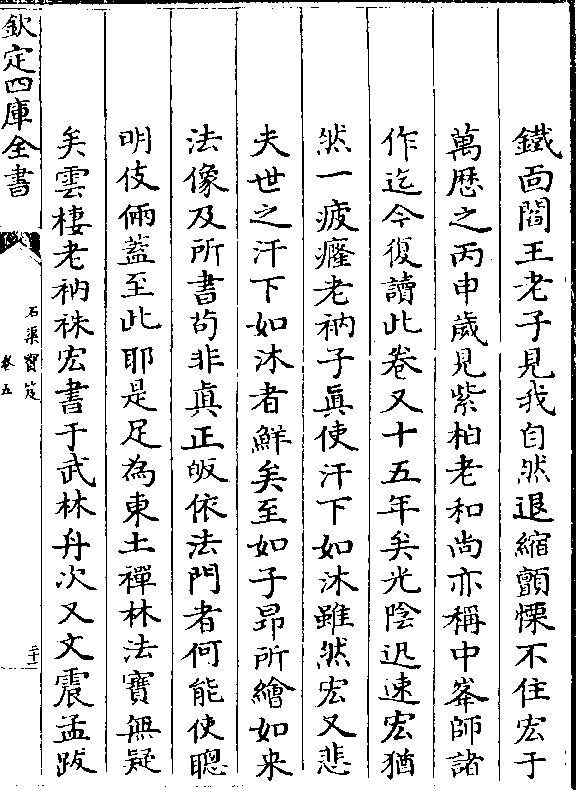 鐵面閻王老子見我自然退縮顫慄不住宏于
萬歴之丙申歲見紫柏老和尚亦稱中峯師諸
作迄今復讀此卷又十五年矣光陰迅速宏猶
然一疲癃老衲子真使汗下如沐雖然宏又悲
夫世之汗下如沐者鮮矣至如子昂所繪如来
法像及所書茍非真正皈依法門者何能使聰
明伎倆蓋至此耶是足為東土禪林法寶無疑
矣雲棲老衲袾宏書于武林舟次又文震孟跋
欽定四庫全書
石渠寶笈
卷五